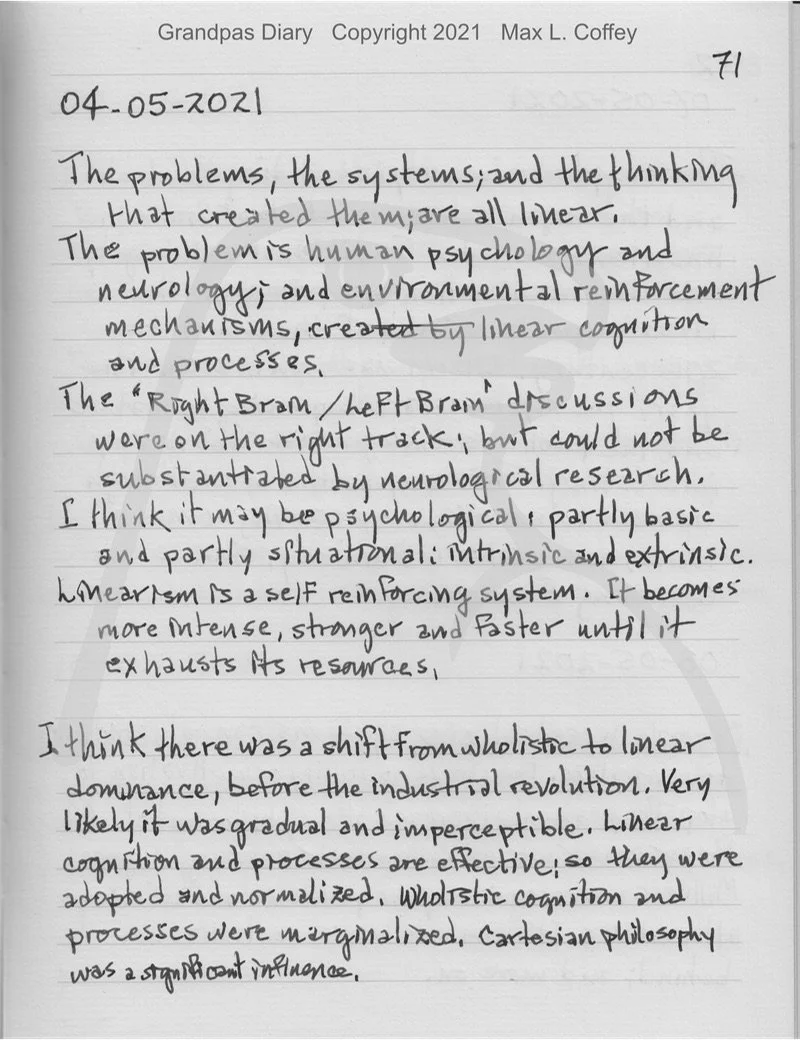 Grandpas Diary Copyright 2021 Max L. Coffey
71
04-05-2021
The problems, the systems; and the thinking
that created them; are all linear.
The problem is human psychology and
neurology; and environmental reinforcement
mechanisms, created by linear cognition
and processes.
The "Right Brain/Left Brain" discussions
were on the right track; but could not be
substantiated by neurological research.
I think it may be psychological; partly basic
and partly situational: intrinsic and extrinsic.
Linearism is a self reinforcing system. It becomes
more intense, stronger and faster until it
exhausts its resources.
I think there was a shift from wholistic to linear
dominance, before the industrial revolution. Very
likely it was gradual and imperceptible. Linear
cognition and processes are effective; so they were
adopted and normalized. Wholistic cognition and
processes were marginalized. Cartesian philosophy
was a significant influence.